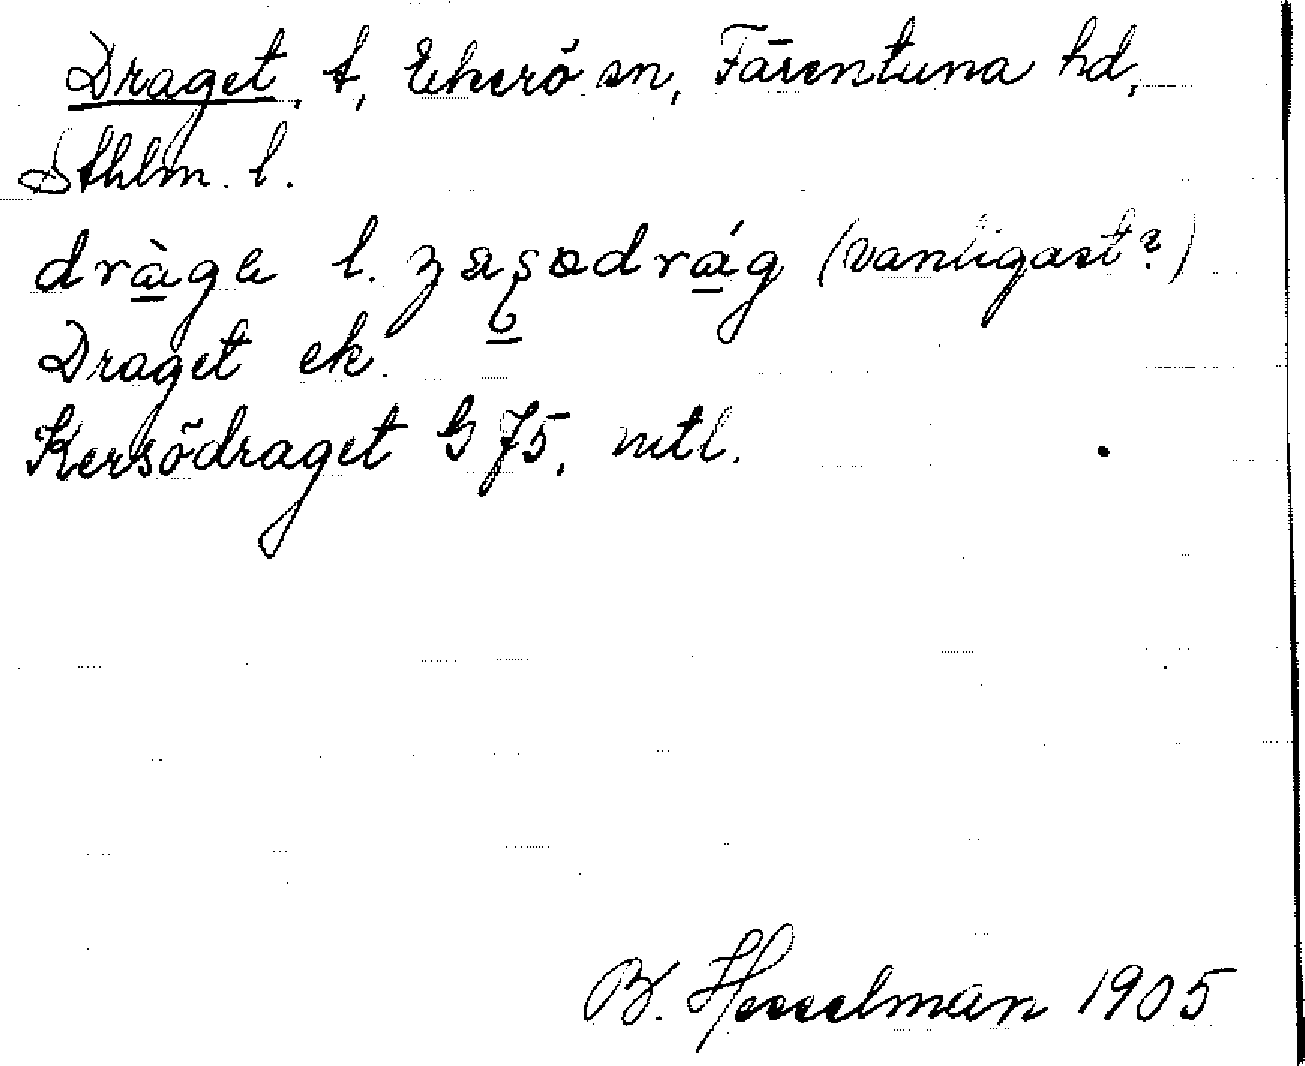 Draget, t, Ekerö sn, Färentuna hd,
Sthlm. l.
dràga l. (vanligast?)
Draget ek.
Kersödraget G 75, mtl.
B. Hesselman 1905